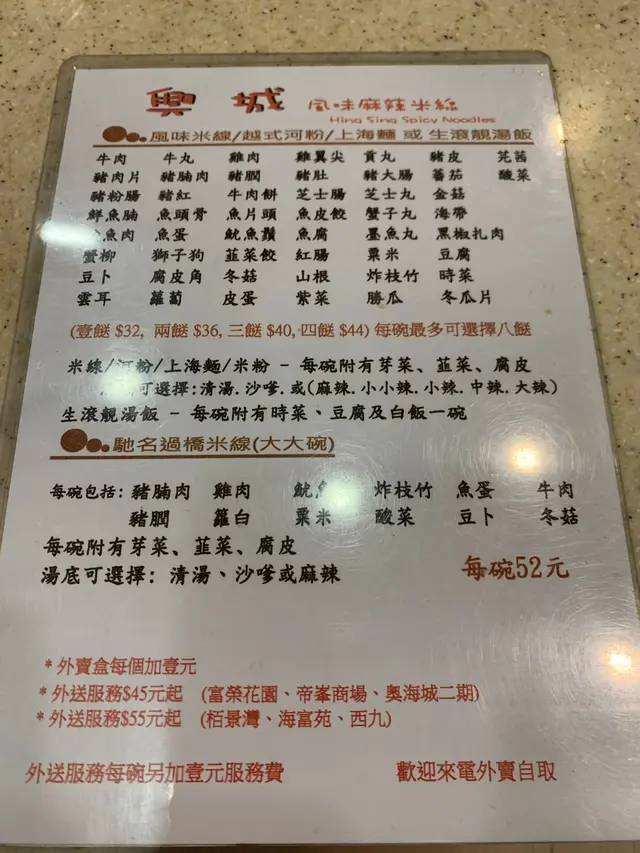 興 城 風味麻辣米線
Hing Sing Spicy Noodles
風味米線/越式河粉/上海麵 或 生滾靚湯飯
牛肉 牛丸 雞肉 雞翼尖 貢丸 豬皮 芫茜
豬肉片 豬腩肉 豬膶 豬肚 豬大腸 蕃茄 酸菜
豬粉腸 豬紅 牛肉餅 芝士腸 芝士丸 金菇
鮮魚腩 魚頭骨 魚片頭 魚皮餃 蟹子丸 海帶
魚肉 魚蛋 魷魚鬚 魚腐 墨魚丸 黑椒扎肉
蟹柳 獅子狗 韮菜餃 紅腸 粟米 豆腐
豆卜 腐皮角 冬菇 山根 炸枝竹 時菜
雲耳 蘿蔔 皮蛋 紫菜 勝瓜 冬瓜片
(壹餸 $32, 兩餸 $36, 三餸 $40, 四餸 $44) 每碗最多可選擇八餸
米線/河粉/上海麵/米粉 - 每碗附有芽菜、韮菜、腐皮
可選擇:清湯.沙嗲.或(麻辣.小小辣.小辣.中辣.大辣)
生滾靚湯飯 - 每碗附有時菜、豆腐及白飯一碗
馳名過橋米線(大大碗)
每碗包括: 豬腩肉 雞肉 魷魚 炸枝竹 魚蛋 牛肉
豬膶 蘿白 粟米 酸菜 豆卜 冬菇
每碗附有芽菜、韮菜、腐皮
湯底可選擇: 清湯、沙嗲或麻辣 每碗52元
* 外賣盒每個加壹元
* 外送服務$45元起 (富榮花園、帝峯商場、奧海城二期)
* 外送服務$55元起 (栢景灣、海富苑、西九)
外送服務每碗另加壹元服務費 歡迎來電外賣自取